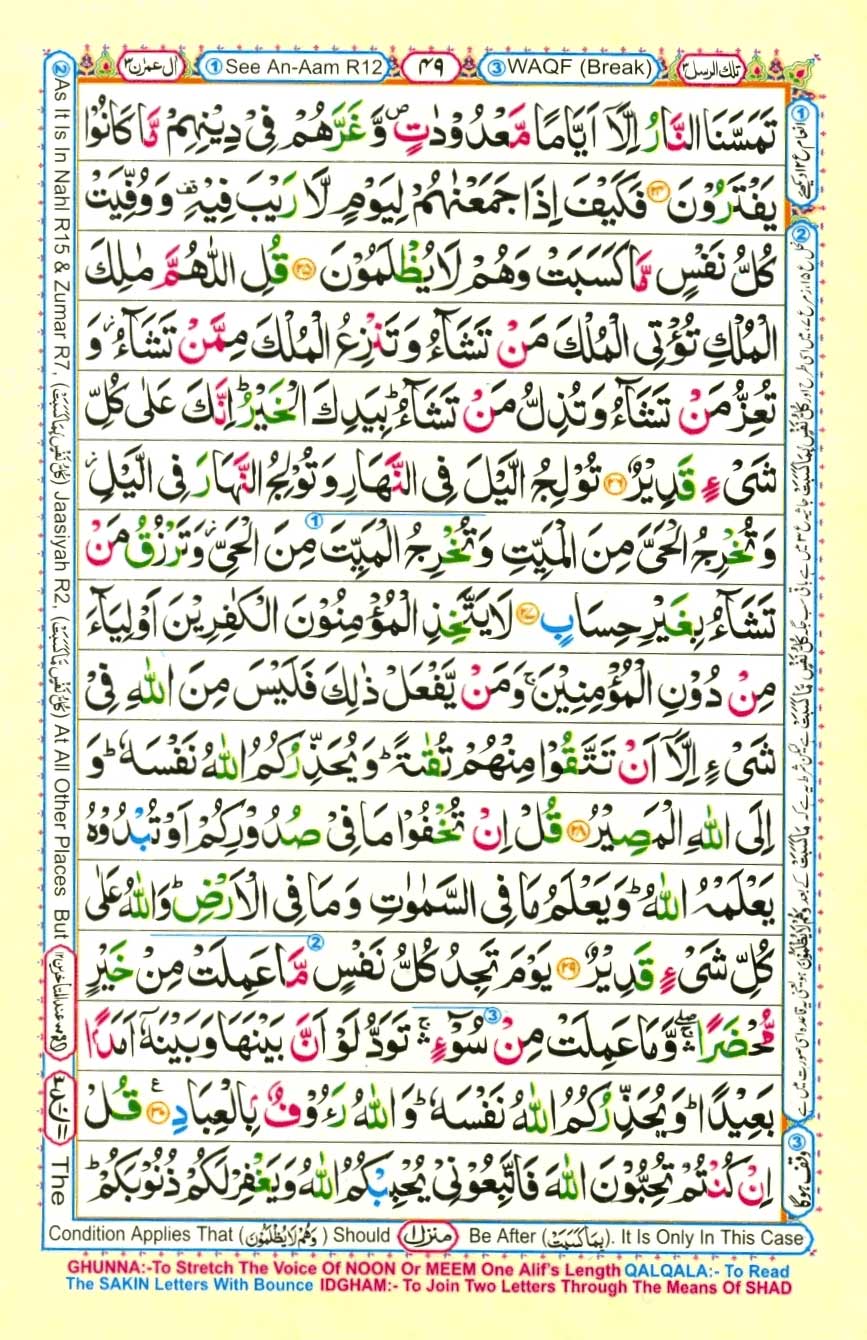 اٰل عمرٰن ۳
① See An-Aam R12
۴۹
③ WAQF (Break)
تلك الرسل ۳
تَمَسَّنَا النَّارُ اِلَّاۤ اَیَّامًا مَّعْدُوْدٰتٍ۪ وَّ غَرَّهُمْ فِیْ دِیْنِهِمْ مَّا كَانُوْا
یَفْتَرُوْنَ ﴿۲۴﴾ فَكَیْفَ اِذَا جَمَعْنٰهُمْ لِیَوْمٍ لَّا رَیْبَ فِیْهِ ۫ وَ وُفِّیَتْ
كُلُّ نَفْسٍ مَّا كَسَبَتْ وَ هُمْ لَا یُظْلَمُوْنَ ﴿۲۵﴾ قُلِ اللّٰهُمَّ مٰلِكَ
الْمُلْكِ تُؤْتِی الْمُلْكَ مَنْ تَشَآءُ وَ تَنْزِعُ الْمُلْكَ مِمَّنْ تَشَآءُ ؗ وَ
تُعِزُّ مَنْ تَشَآءُ وَ تُذِلُّ مَنْ تَشَآءُ ؕ بِیَدِكَ الْخَیْرُ ؕ اِنَّكَ عَلٰی كُلِّ
شَیْءٍ قَدِیْرٌ ﴿۲۶﴾ تُوْلِجُ الَّیْلَ فِی النَّهَارِ وَ تُوْلِجُ النَّهَارَ فِی الَّیْلِ ؗ
وَ تُخْرِجُ الْحَیَّ مِنَ الْمَیِّتِ وَ تُخْرِجُ الْمَیِّتَ مِنَ الْحَیِّ ؗ وَ تَرْزُقُ مَنْ
تَشَآءُ بِغَیْرِ حِسَابٍ ﴿۲۷﴾ لَا یَتَّخِذِ الْمُؤْمِنُوْنَ الْكٰفِرِیْنَ اَوْلِیَآءَ
مِنْ دُوْنِ الْمُؤْمِنِیْنَ ۚ وَ مَنْ یَّفْعَلْ ذٰلِكَ فَلَیْسَ مِنَ اللّٰهِ فِیْ
شَیْءٍ اِلَّاۤ اَنْ تَتَّقُوْا مِنْهُمْ تُقٰىةً ؕ وَ یُحَذِّرُكُمُ اللّٰهُ نَفْسَهٗ ؕ وَ
اِلَی اللّٰهِ الْمَصِیْرُ ﴿۲۸﴾ قُلْ اِنْ تُخْفُوْا مَا فِیْ صُدُوْرِكُمْ اَوْ تُبْدُوْهُ
یَعْلَمْهُ اللّٰهُ ؕ وَ یَعْلَمُ مَا فِی السَّمٰوٰتِ وَ مَا فِی الْاَرْضِ ؕ وَ اللّٰهُ عَلٰی
كُلِّ شَیْءٍ قَدِیْرٌ ﴿۲۹﴾ یَوْمَ تَجِدُ كُلُّ نَفْسٍ مَّا عَمِلَتْ مِنْ خَیْرٍ
مُّحْضَرًا ۛۖۚ وَّ مَا عَمِلَتْ مِنْ سُوْٓءٍ ۛۚ تَوَدُّ لَوْ اَنَّ بَیْنَهَا وَ بَیْنَهٗۤ اَمَدًۢا
بَعِیْدًا ؕ وَ یُحَذِّرُكُمُ اللّٰهُ نَفْسَهٗ ؕ وَ اللّٰهُ رَءُوْفٌۢ بِالْعِبَادِ ﴿۳۰﴾ قُلْ
اِنْ كُنْتُمْ تُحِبُّوْنَ اللّٰهَ فَاتَّبِعُوْنِیْ یُحْبِبْكُمُ اللّٰهُ وَ یَغْفِرْ لَكُمْ ذُنُوْبَكُمْ ؕ
② As It Is In Nahl R15 & Zumar R7, (كُلُّ نَفْسٍ بِمَا كَسَبَتْ) Jaasiyah R2, (كُلُّ نَفْسٍ مَّا كَسَبَتْ) At All Other Places But
The
Condition Applies That (وَهُمْ لَا يُظْلَمُوْنَ) Should
منزل ۱
Be After (بِمَا كَسَبَتْ). It Is Only In This Case
③ وقف ہوگا
GHUNNA:-To Stretch The Voice Of NOON Or MEEM One Alif's Length QALQALA:- To Read
The SAKIN Letters With Bounce IDGHAM:- To Join Two Letters Through The Means Of SHAD